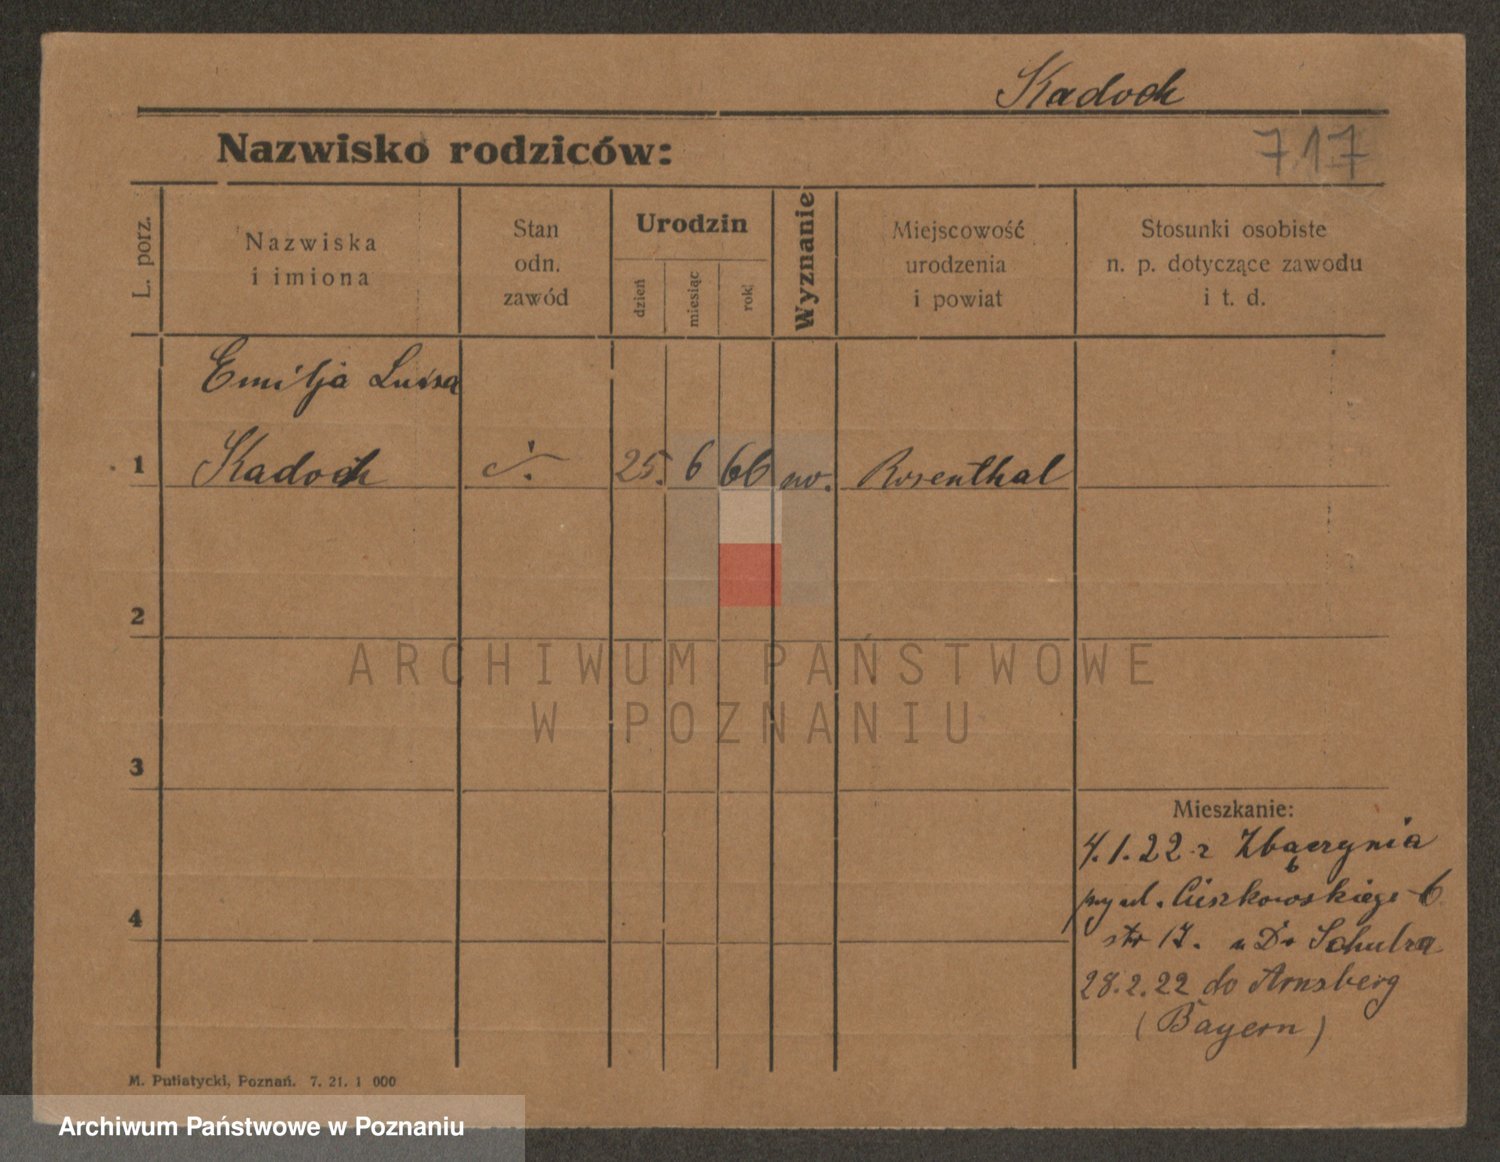 Kadoch
Nazwisko rodziców:
717
L. porz.
Nazwiska
i imiona
Stan
odn.
zawód
Urodzin
dzień
miesiąc
rok
Wyznanie
Miejscowość
urodzenia
i powiat
Stosunki osobiste
n. p. dotyczące zawodu
i t. d.
Emilja Luisa
1 Kadoch 25. 6 66 Rosenthal
2
ARCHIWUM PAŃSTWOWE
W POZNANIU
3
Mieszkanie:
4.1.22 z Zbączynia
przy ul. Ciszkowskiego 6
4
u Dr Schulza
28.2.22 do Arnsberg
(Bayern)
M. Putiatycki, Poznań. 7. 21. 1 000
Archiwum Państwowe w Poznaniu